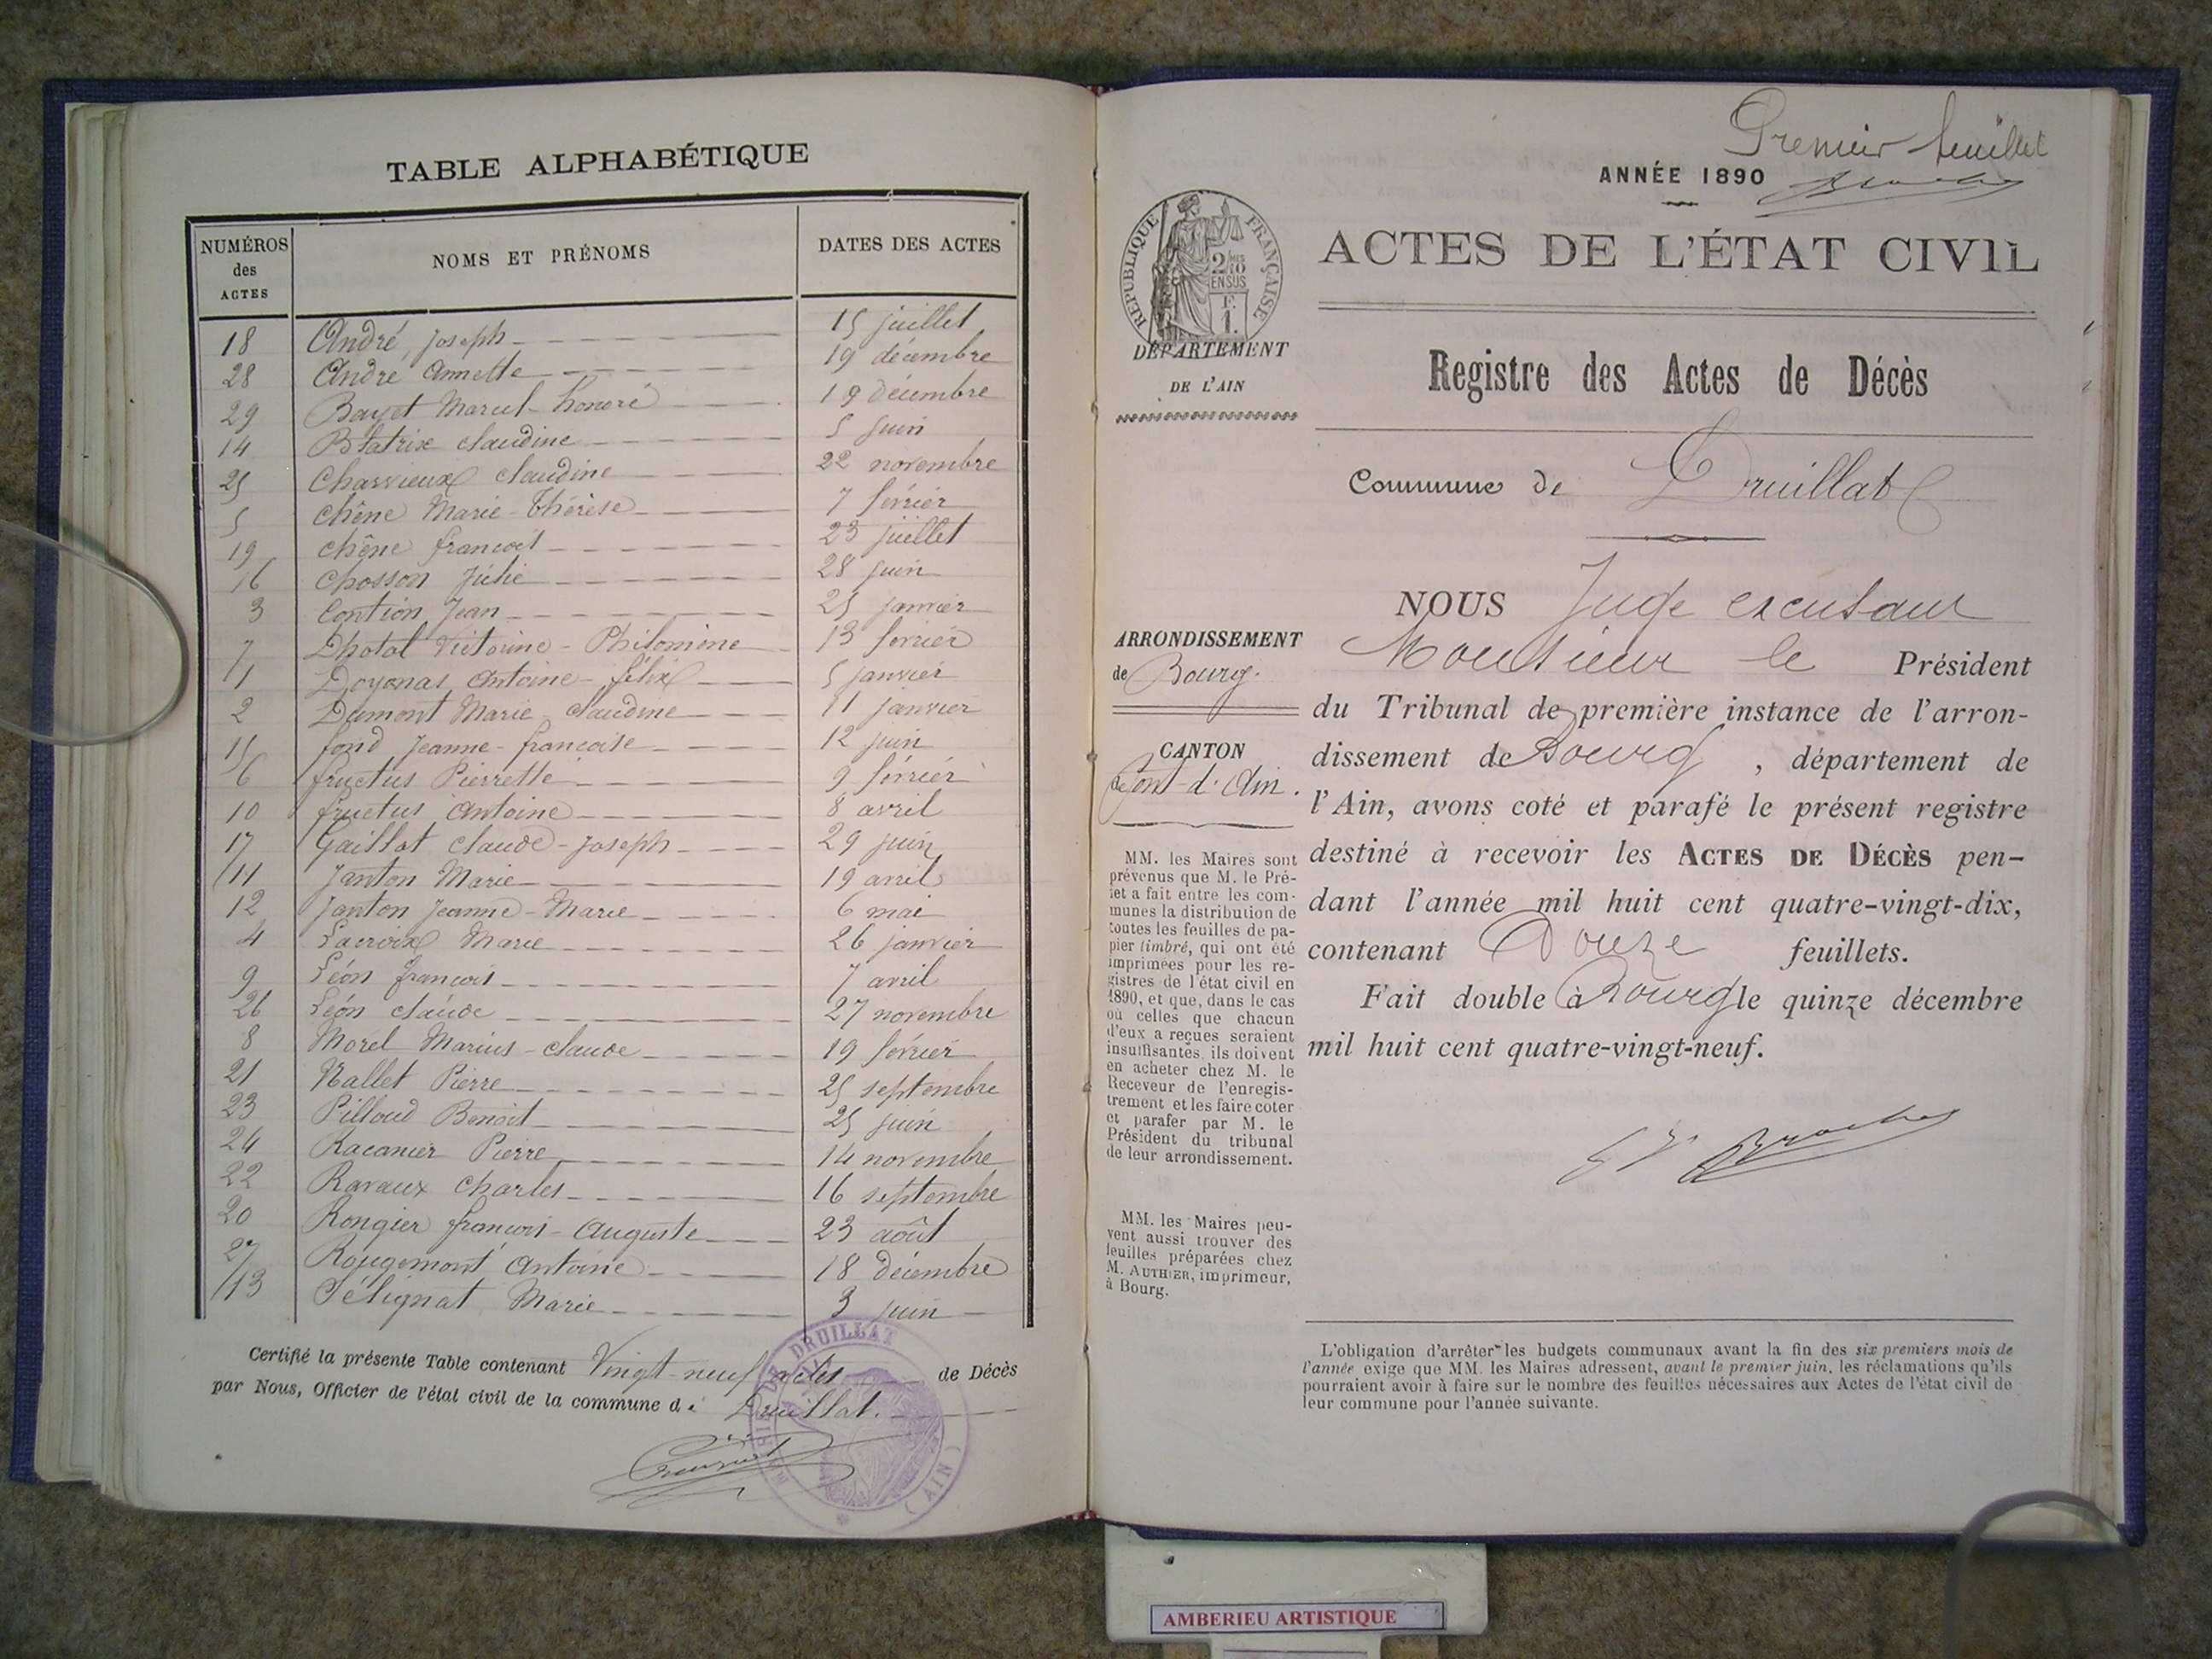 TABLE ALPHABÉTIQUE
NUMÉROS des ACTES | NOMS ET PRÉNOMS | DATES DES ACTES
18 André, Joseph 15 juillet
28 André Annette 19 décembre
29 Bayet Marcel-honoré 19 décembre
14 Blatrix claudine 5 juin
25 Charvieux claudine 22 novembre
5 chêne Marie-Thérèse 7 février
19 chêne françois 23 juillet
16 Chosson Julie 28 juin
3 Contion Jean 25 janvier
7 Dhotal Victorine-Philomine 13 février
1 Doyonas Antoine-félix 5 janvier
2 Dumont Marie claudine 11 janvier
15 fond Jeanne-françoise 12 juin
6 fructus Pierrette 9 février
10 fructus Antoine 8 avril
17 Gaillat claude-Joseph 29 juin
11 Janton Marie 19 avril
12 Janton Jeanne-Marie 6 mai
4 Lacroix Marie 26 janvier
9 Léon françois 7 avril
26 Léon claude 27 novembre
8 Morel Marius-claude 19 février
21 Nallet Pierre 25 septembre
23 Pilloud Benoit 25 juin
24 Racanier Pierre 14 novembre
22 Ravaux Charles 16 septembre
20 Rongier françois-Auguste 23 août
27 Rougemont Antoine 18 décembre
13 Télignat Marie 3 juin
Certifié la présente Table contenant Vingt-neuf actes de Décès
par Nous, Officier de l'état civil de la commune de Druillat.
MAIRIE DE DRUILLAT
(AIN)
Premier feuillet
ANNÉE 1890
RÉPUBLIQUE FRANÇAISE
2/10 EN SUS
F. 1.
ACTES DE L'ÉTAT CIVIL
DÉPARTEMENT
DE L'AIN
Registre des Actes de Décès
Commune de Druillat
NOUS Juge excusant
Monsieur le Président
ARRONDISSEMENT
de Bourg.
du Tribunal de première instance de l'arron-
dissement de Bourg, département de
CANTON
de Pont-d'Ain.
l'Ain, avons coté et parafé le présent registre
destiné à recevoir les ACTES DE DÉCÈS pen-
dant l'année mil huit cent quatre-vingt-dix,
contenant Douze feuillets.
Fait double à Bourg le quinze décembre
mil huit cent quatre-vingt-neuf.
MM. les Maires sont
prévenus que M. le Pré-
fet a fait entre les com-
munes la distribution de
toutes les feuilles de pa-
pier timbré, qui ont été
imprimées pour les re-
gistres de l'état civil en
1890, et que, dans le cas
où celles que chacun
d'eux a reçues seraient
insuffisantes, ils doivent
en acheter chez M. le
Receveur de l'enregis-
trement et les faire coter
et parafer par M. le
Président du tribunal
de leur arrondissement.
MM. les Maires peu-
vent aussi trouver des
feuilles préparées chez
M. AUTHIER, imprimeur,
à Bourg.
L'obligation d'arrêter les budgets communaux avant la fin des six premiers mois de
l'année exige que MM. les Maires adressent, avant le premier juin, les réclamations qu'ils
pourraient avoir à faire sur le nombre des feuilles nécessaires aux Actes de l'état civil de
leur commune pour l'année suivante.
AMBERIEU ARTISTIQUE